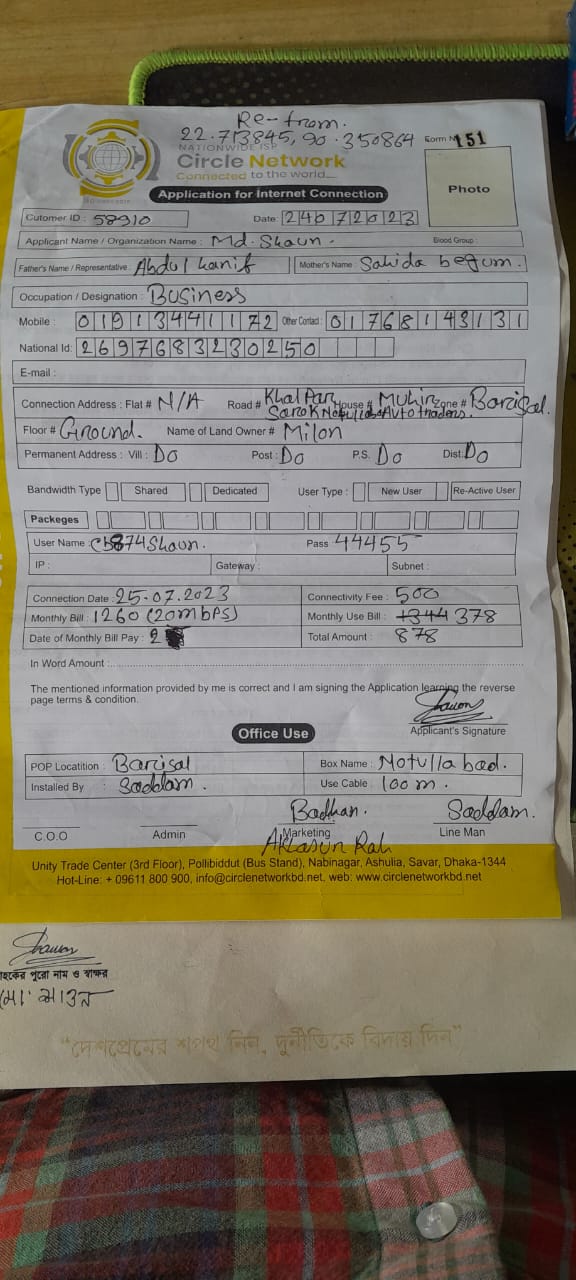 Re-from.
22.713845, 90.350864 Form N 151
NATIONWIDE ISP
Circle Network
Connected to the world...
Application for Internet Connection
Photo
Cutomer ID : 58910 Date: 24072023
Applicant Name / Organization Name : Md-Shaun. Blood Group :
Father's Name / Representative : Abdul hanif Mother's Name Sahida begum.
Occupation / Designation : Business
Mobile : 01913441172 Other Contact : 01768143131
National Id: 2697683230250
E-mail :
Connection Address : Flat # N/A Road # Khal Par House # Muhin Zone # Barisal.
Sarok Autotraders.
Floor # Ground. Name of Land Owner # Milon
Permanent Address : Vill : Do Post : Do P.S. Do Dist: Do
Bandwidth Type Shared Dedicated User Type : New User Re-Active User
Packeges
User Name : Shaun. Pass 44455
IP : Gateway : Subnet :
Connection Date : 25-07.2023 Connectivity Fee : 500
Monthly Bill : 1260 (20mbps) Monthly Use Bill : 1344 378
Date of Monthly Bill Pay : 2 Total Amount : 878
In Word Amount :
The mentioned information provided by me is correct and I am signing the Application learning the reverse
page terms & condition.
Shawon
Applicant's Signature
Office Use
POP Locatition : Barisal Box Name : Notullabad.
Installed By : Saddam. Use Cable : 100m.
Badhan. Saddam.
C.O.O Admin Marketing Line Man
Unity Trade Center (3rd Floor), Pollibiddut (Bus Stand), Nabinagar, Ashulia, Savar, Dhaka-1344
Hot-Line: + 09611 800 900, info@circlenetworkbd.net, web: www.circlenetworkbd.net
Shawon
হকের পুরো নাম ও স্বাক্ষর
মোঃ শাওন
“দেশপ্রেমের শপথ নিন, দুর্নীতিকে বিদায় দিন”